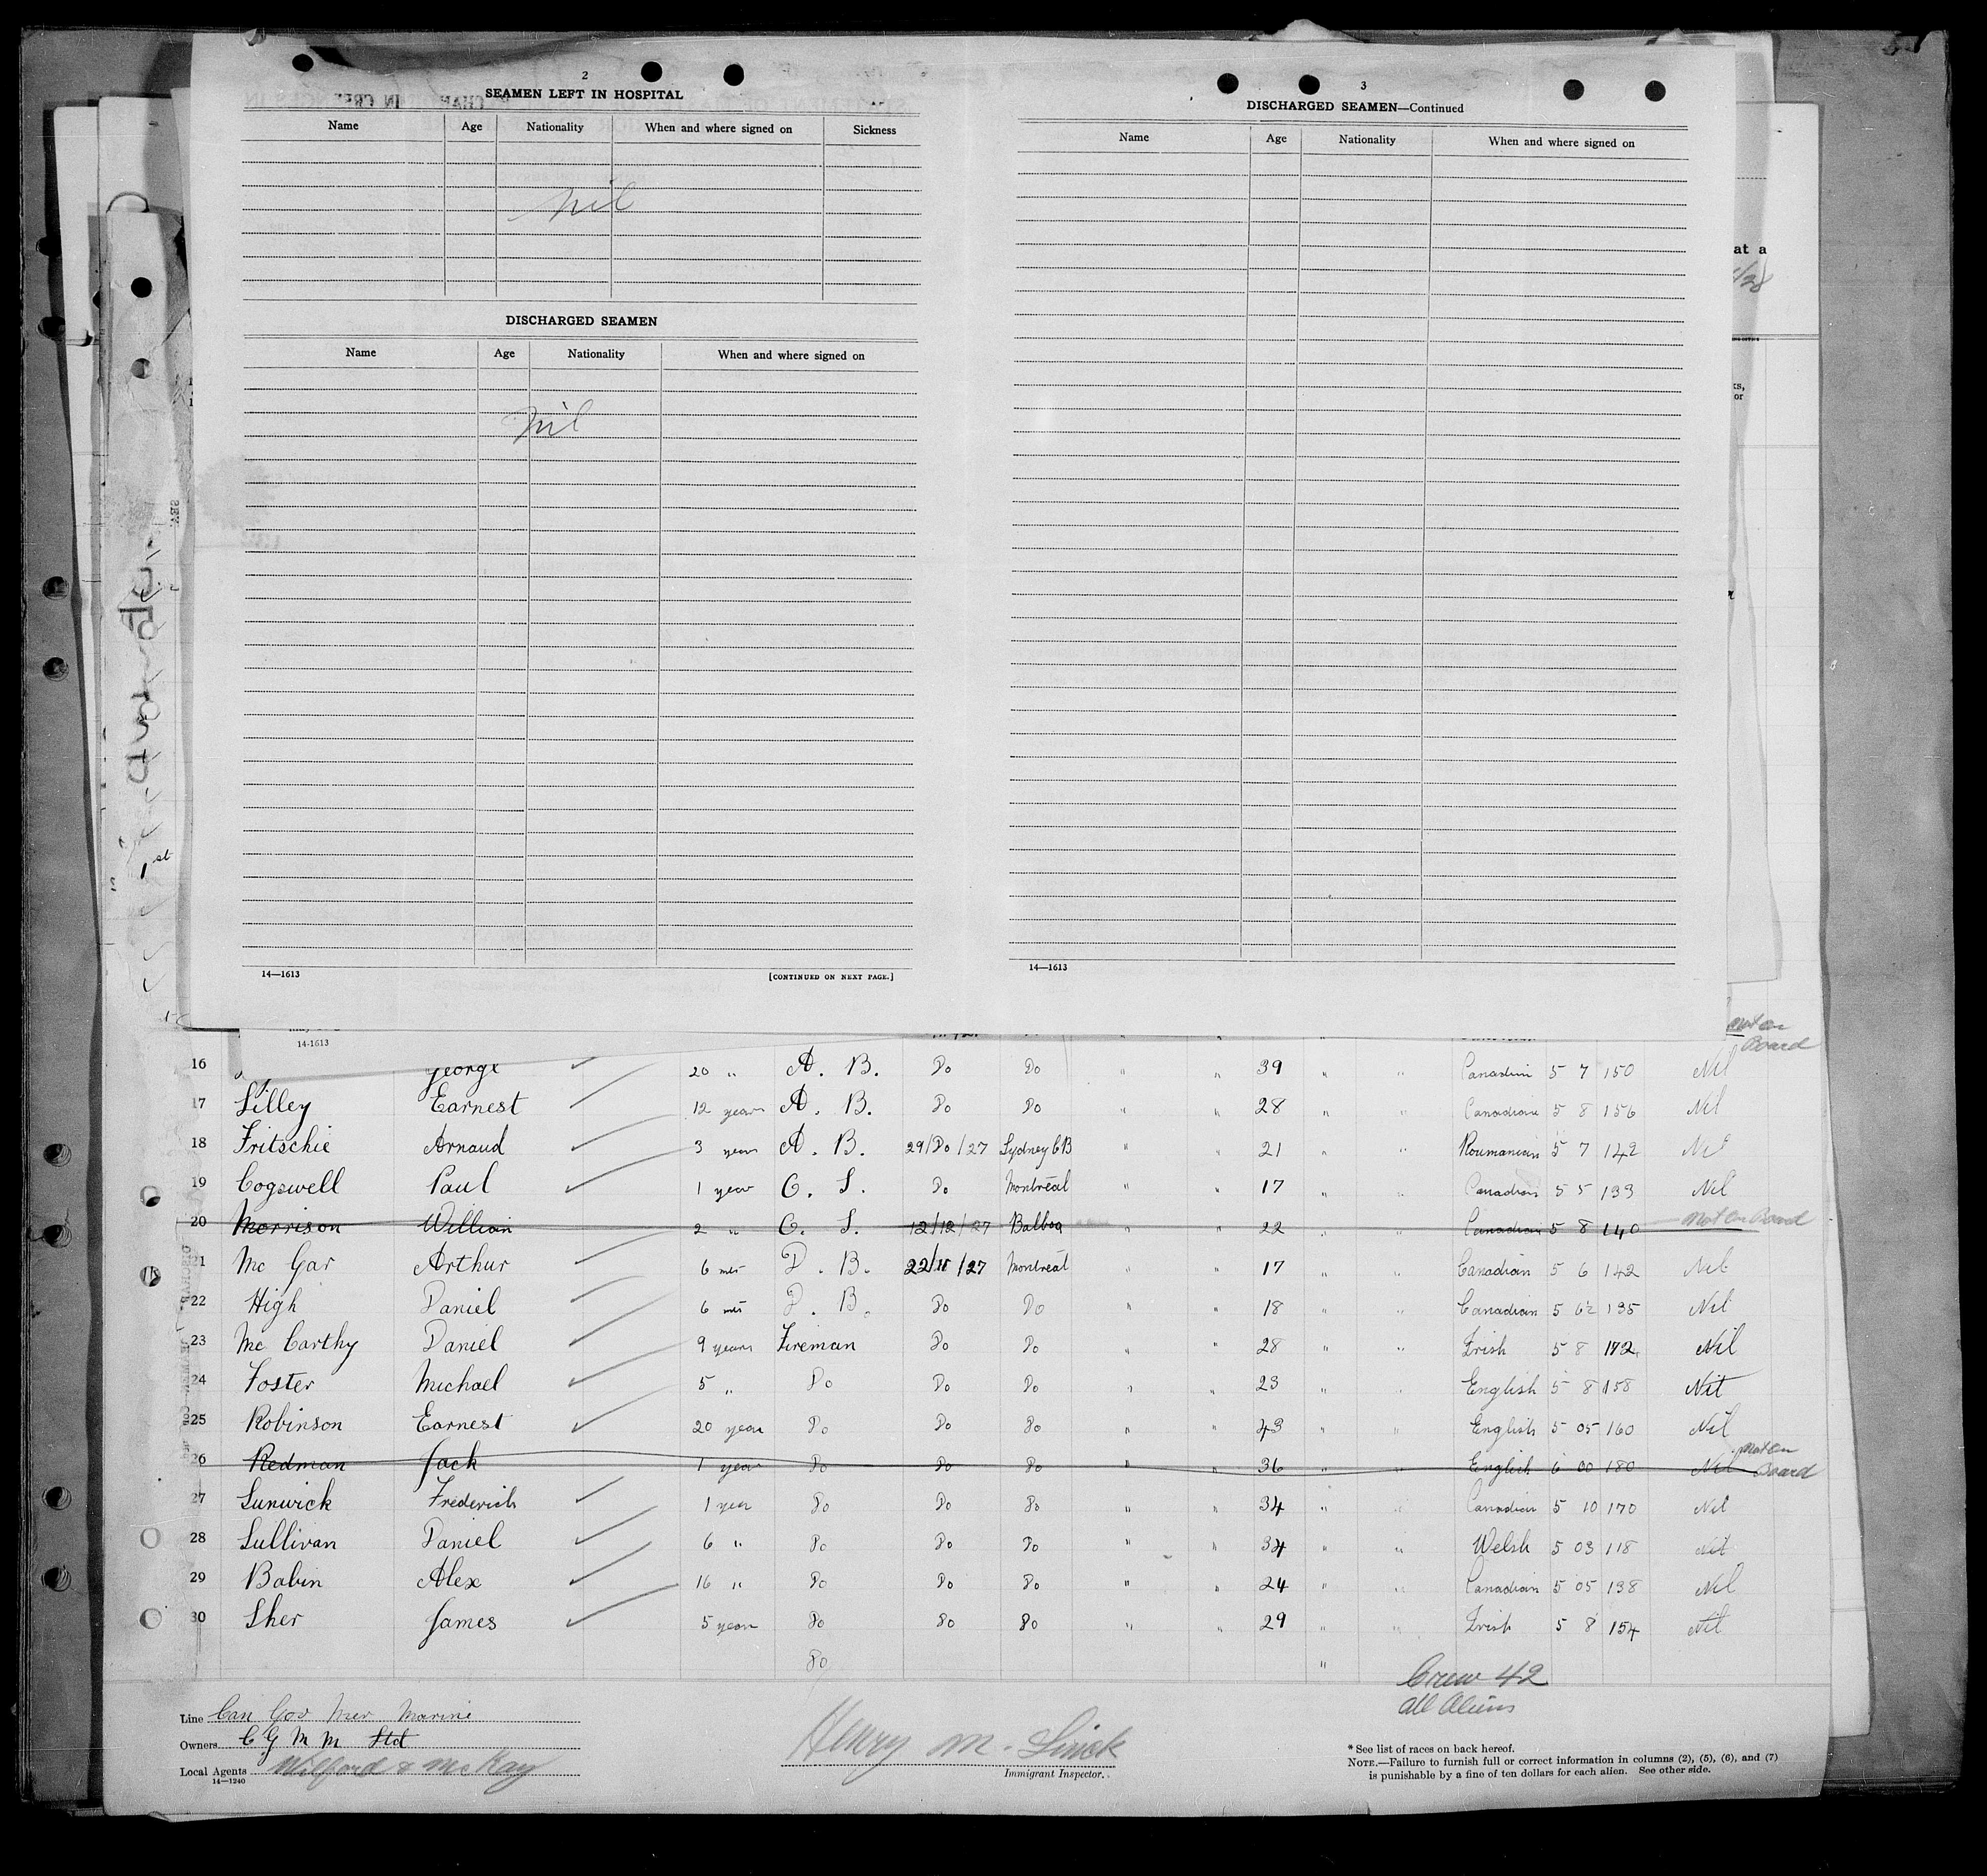 2
SEAMEN LEFT IN HOSPITAL
Name Age Nationality When and where signed on Sickness
Nil
DISCHARGED SEAMEN
Name Age Nationality When and where signed on
Nil
14—1613 [CONTINUED ON NEXT PAGE.]
3
DISCHARGED SEAMEN—Continued
Name Age Nationality When and where signed on
14—1613
at a
or
1st
14-1613
Not on
Board
16 George 20 " A. B. Do Do " " 39 " " Canadian 5 7 150 Nil
17 Lilley Earnest 12 years A. B. Do Do " " 28 " " Canadian 5 8 156 Nil
18 Fritschie Arnaud 3 years A. B. 29/Do/27 Sydney C B " " 21 " " Roumanian 5 7 142 Nil
19 Cogswell Paul 1 year O. S. Do Montreal " " 17 " " Canadian 5 5 133 Nil
20 Morrison William 2 " O. S. 12/12/27 Balboa " " 22 " " Canadian 5 8 140 Not on Board
21 Mc Gar Arthur 6 mts D. B. 22/11/27 Montreal " " 17 " " Canadian 5 6 142 Nil
22 High Daniel 6 mts D. B. Do Do " " 18 " " Canadian 5 6½ 135 Nil
23 Mc Carthy Daniel 9 years Fireman Do Do " " 28 " " Irish 5 8 172 Nil
24 Foster Michael 5 " Do Do Do " " 23 " " English 5 8 158 Nil
25 Robinson Earnest 20 year Do Do Do " " 43 " " English 5 05 160 Nil
26 Redman Jack 1 year Do Do Do " " 36 " " English 6 00 180 Nil Not on Board
27 Lunwick Frederich 1 year Do Do Do " " 34 " " Canadian 5 10 170 Nil
28 Sullivan Daniel 6 " Do Do Do " " 34 " " Welsh 5 03 118 Nil
29 Babin Alex 16 " Do Do Do " " 24 " " Canadian 5 05 138 Nil
30 Sher James 5 year Do Do Do " " 29 " " Irish 5 8 154 Nil
Do "
Crew 42
All Aliens
Line Can Gov Mer Marine
Owners C G M M Ltd
Local Agents Wilford & McKay
14—1240
Henry M. Linck
Immigrant Inspector.
* See list of races on back hereof.
NOTE.—Failure to furnish full or correct information in columns (2), (5), (6), and (7)
is punishable by a fine of ten dollars for each alien. See other side.